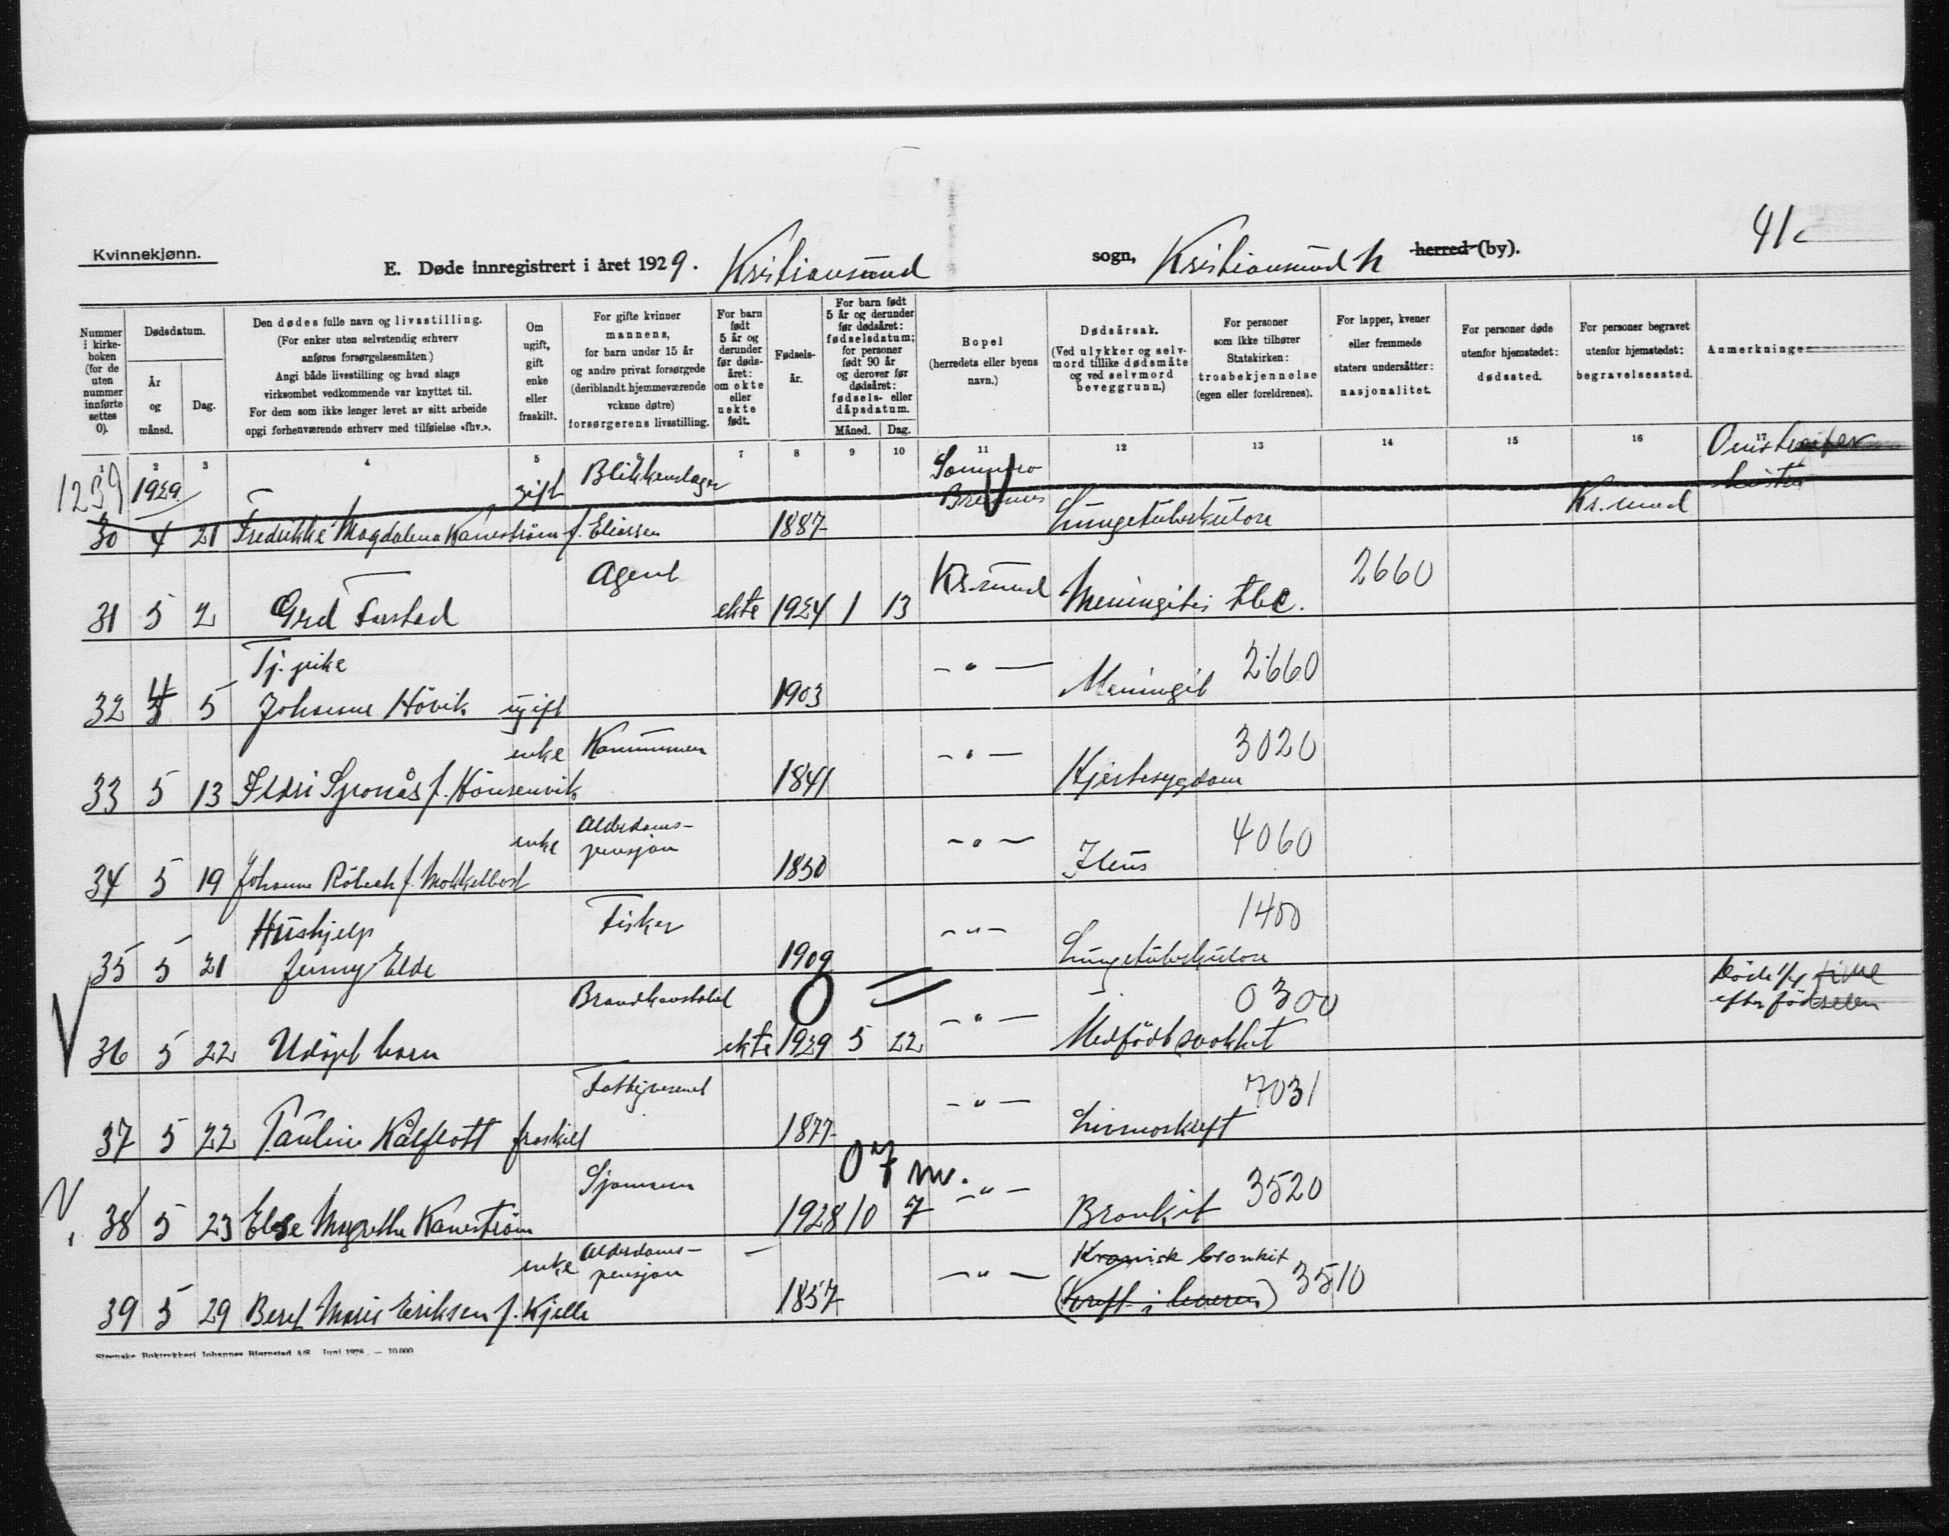 41
Kvinnekjønn.
E. Døde innregistrert i året 1929. Kristiansund sogn, Kristiansund N herred (by).
Nummer i kirkeboken (for de uten nummer innførte settes 0).
Dødsdatum.
År og måned.
Dag.
Den dødes fulle navn og livsstilling.
(For enker uten selvstendig erhverv anføres forsørgelsesmåten.)
Angi både livsstilling og hvad slags virksomhet vedkommende var knyttet til.
For dem som ikke lenger levet av sitt arbeide opgi forhenværende erhverv med tilføielse «fhv.».
Om ugift, gift enke eller fraskilt.
For gifte kvinner mannens, for barn under 15 år og andre privat forsørgede (deriblandt hjemmeværende voksne døtre) forsørgerens livsstilling.
For barn født 5 år og derunder før dødsåret: om ekte eller uekte født.
Fødselsår.
For barn født 5 år og derunder før dødsåret: fødselsdatum; for personer født 90 år og derover før dødsåret: fødsels- eller dåpsdatum.
Måned. Dag.
Bopel (herredets eller byens navn.)
Dødsårsak.
(Ved ulykker og selvmord tillike dødsmåte og ved selvmord beveggrunn.)
For personer som ikke tilhører Statskirken: trosbekjennelse (egen eller foreldrenes).
For lapper, kvener eller fremmede staters undersåtter: nasjonalitet.
For personer døde utenfor hjemstedet: dødssted.
For personer begravet utenfor hjemstedet: begravelsessted.
Anmerkninger
1 2 3 4 5 7 8 9 10 11 12 13 14 15 16 17
1239 1929 gift Blikkenslager
30 4 21 Fredrikke Magdalena Kanestrøm f. Eliassen 1887 Lungetuberkulose Kr.sund
Agent Kr.sund 2660
31 5 2 Gerd Farstad ekte 1924 1 13 Meningitis tbc.
Tj. pike - " - 2660
32 4 5 Johanne Høvik ugift 1903 Meningit
enke Kommunen - " - 3020
33 5 13 f. 1841 Hjertesygdom
enke Alderdoms- - " - 4060
pensjon
34 5 19 Johanne f. 1850 Ileus
Hushjelp Fisker - " - 1400
35 5 21 Jenny Elde 1909 Lungetuberkulose
Brandkonstabel 0 - " - 0300 efter fødselen
36 5 22 Udøpt barn ekte 1929 5 22 Medfødt svakhet
Fattigvesenet - " - 7031
37 5 22 Pauline Kålflott fraskilt 1877
07 m.
Sjømann - " - 3520
38 5 23 Else Margrethe Kanestrøm 1928 10 7 Bronkit
enke Alderdoms- - - " - Kronisk bronkit
pensjon 3510
39 5 29 Beret Marie Eriksen f. Kjelle 1857 (Kreft i leveren)
Steenske Boktrykkeri Johannes Bjørnstad A/S. Juni 1928. — 10 000